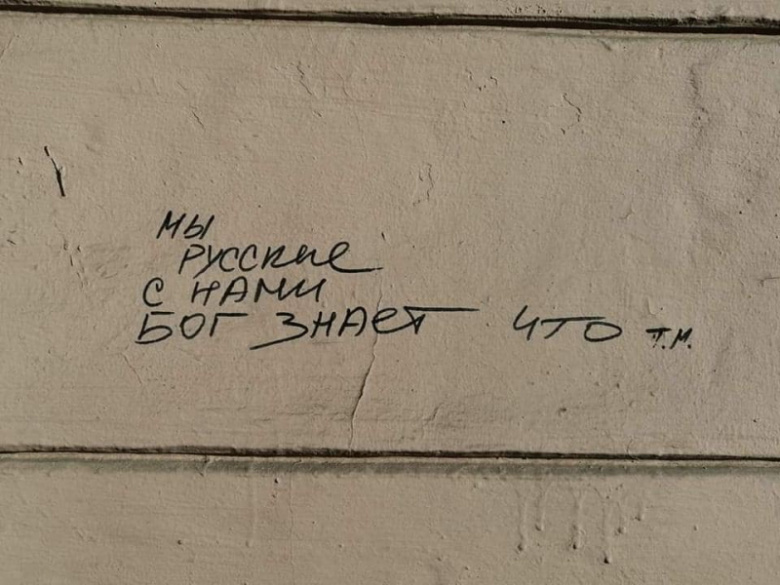 мы
русские
с нами
Бог знает что т.м.